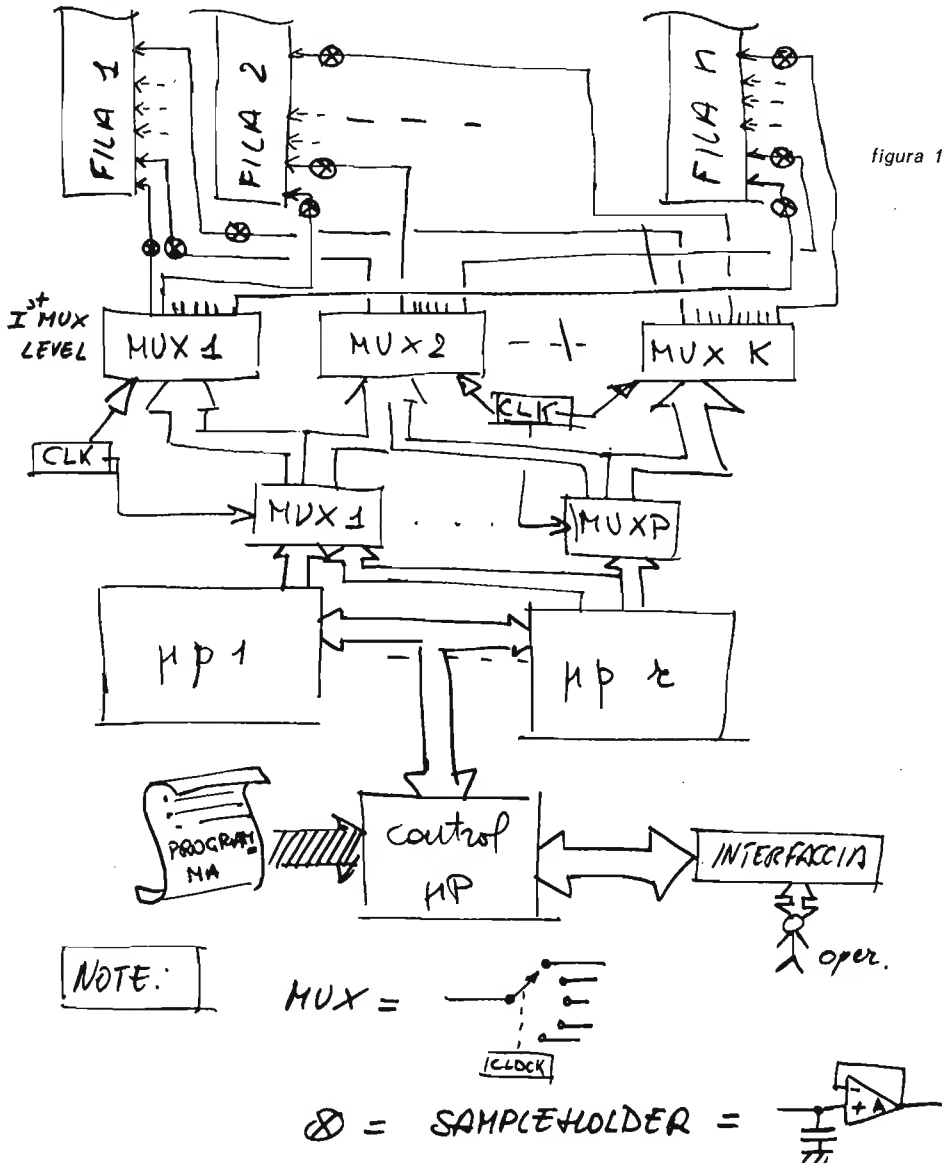 FILA 1
FILA 2
FILA n
figura 1
Ist MUX
LEVEL
MUX 1
MUX 2
MUX K
CLK
CLK
MUX 1
MUX P
μp 1
μp r
PROGRAM
MA
control
μP
INTERFACCIA
oper.
NOTE:
MUX =
CLOCK
⊗ = SAMPLE HOLDER =
- 
+ A